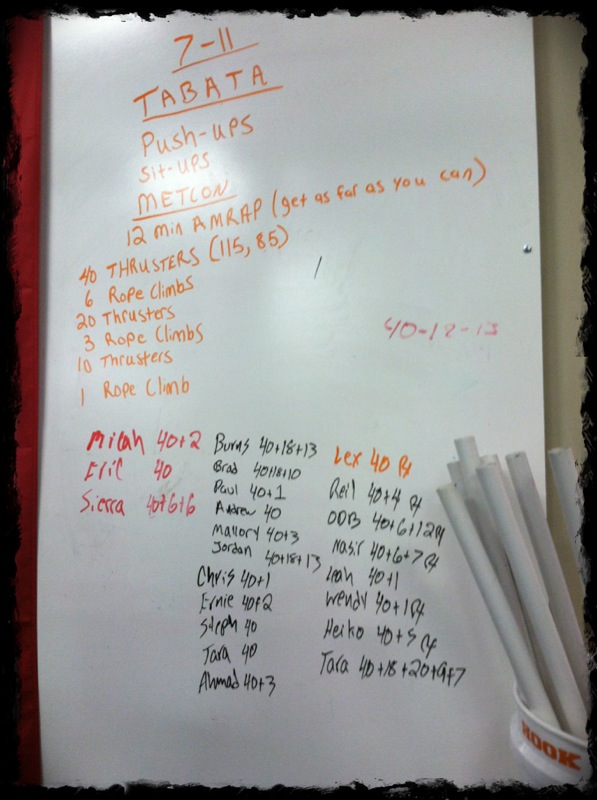 7-11
TABATA
Push-ups
Sit-ups
METCON
12 min AMRAP (get as far as you can)
40 THRUSTERS (115, 85)
6 Rope Climbs
20 Thrusters
3 Rope Climbs
10 Thrusters
1 Rope Climb
40-12-13
Micah 40+2
Eric 40
Sierra 40+6+6
Burns 40+18+13
Brad 40+18+10
Paul 40+1
Andrew 40
Mallory 40+3
Jordan 40+18+13
Chris 40+1
Ernie 40+2
Steph 40
Tara 40
Ahmad 40+3
Lex 40 Rx
Neil 40+4 Rx
ODB 40+6+12 Rx
Nasir 40+6+7 Rx
Leah 40+1
Wendy 40+1 Rx
Heiko 40+5 Rx
Tara 40+18+20+9+7
ROOK